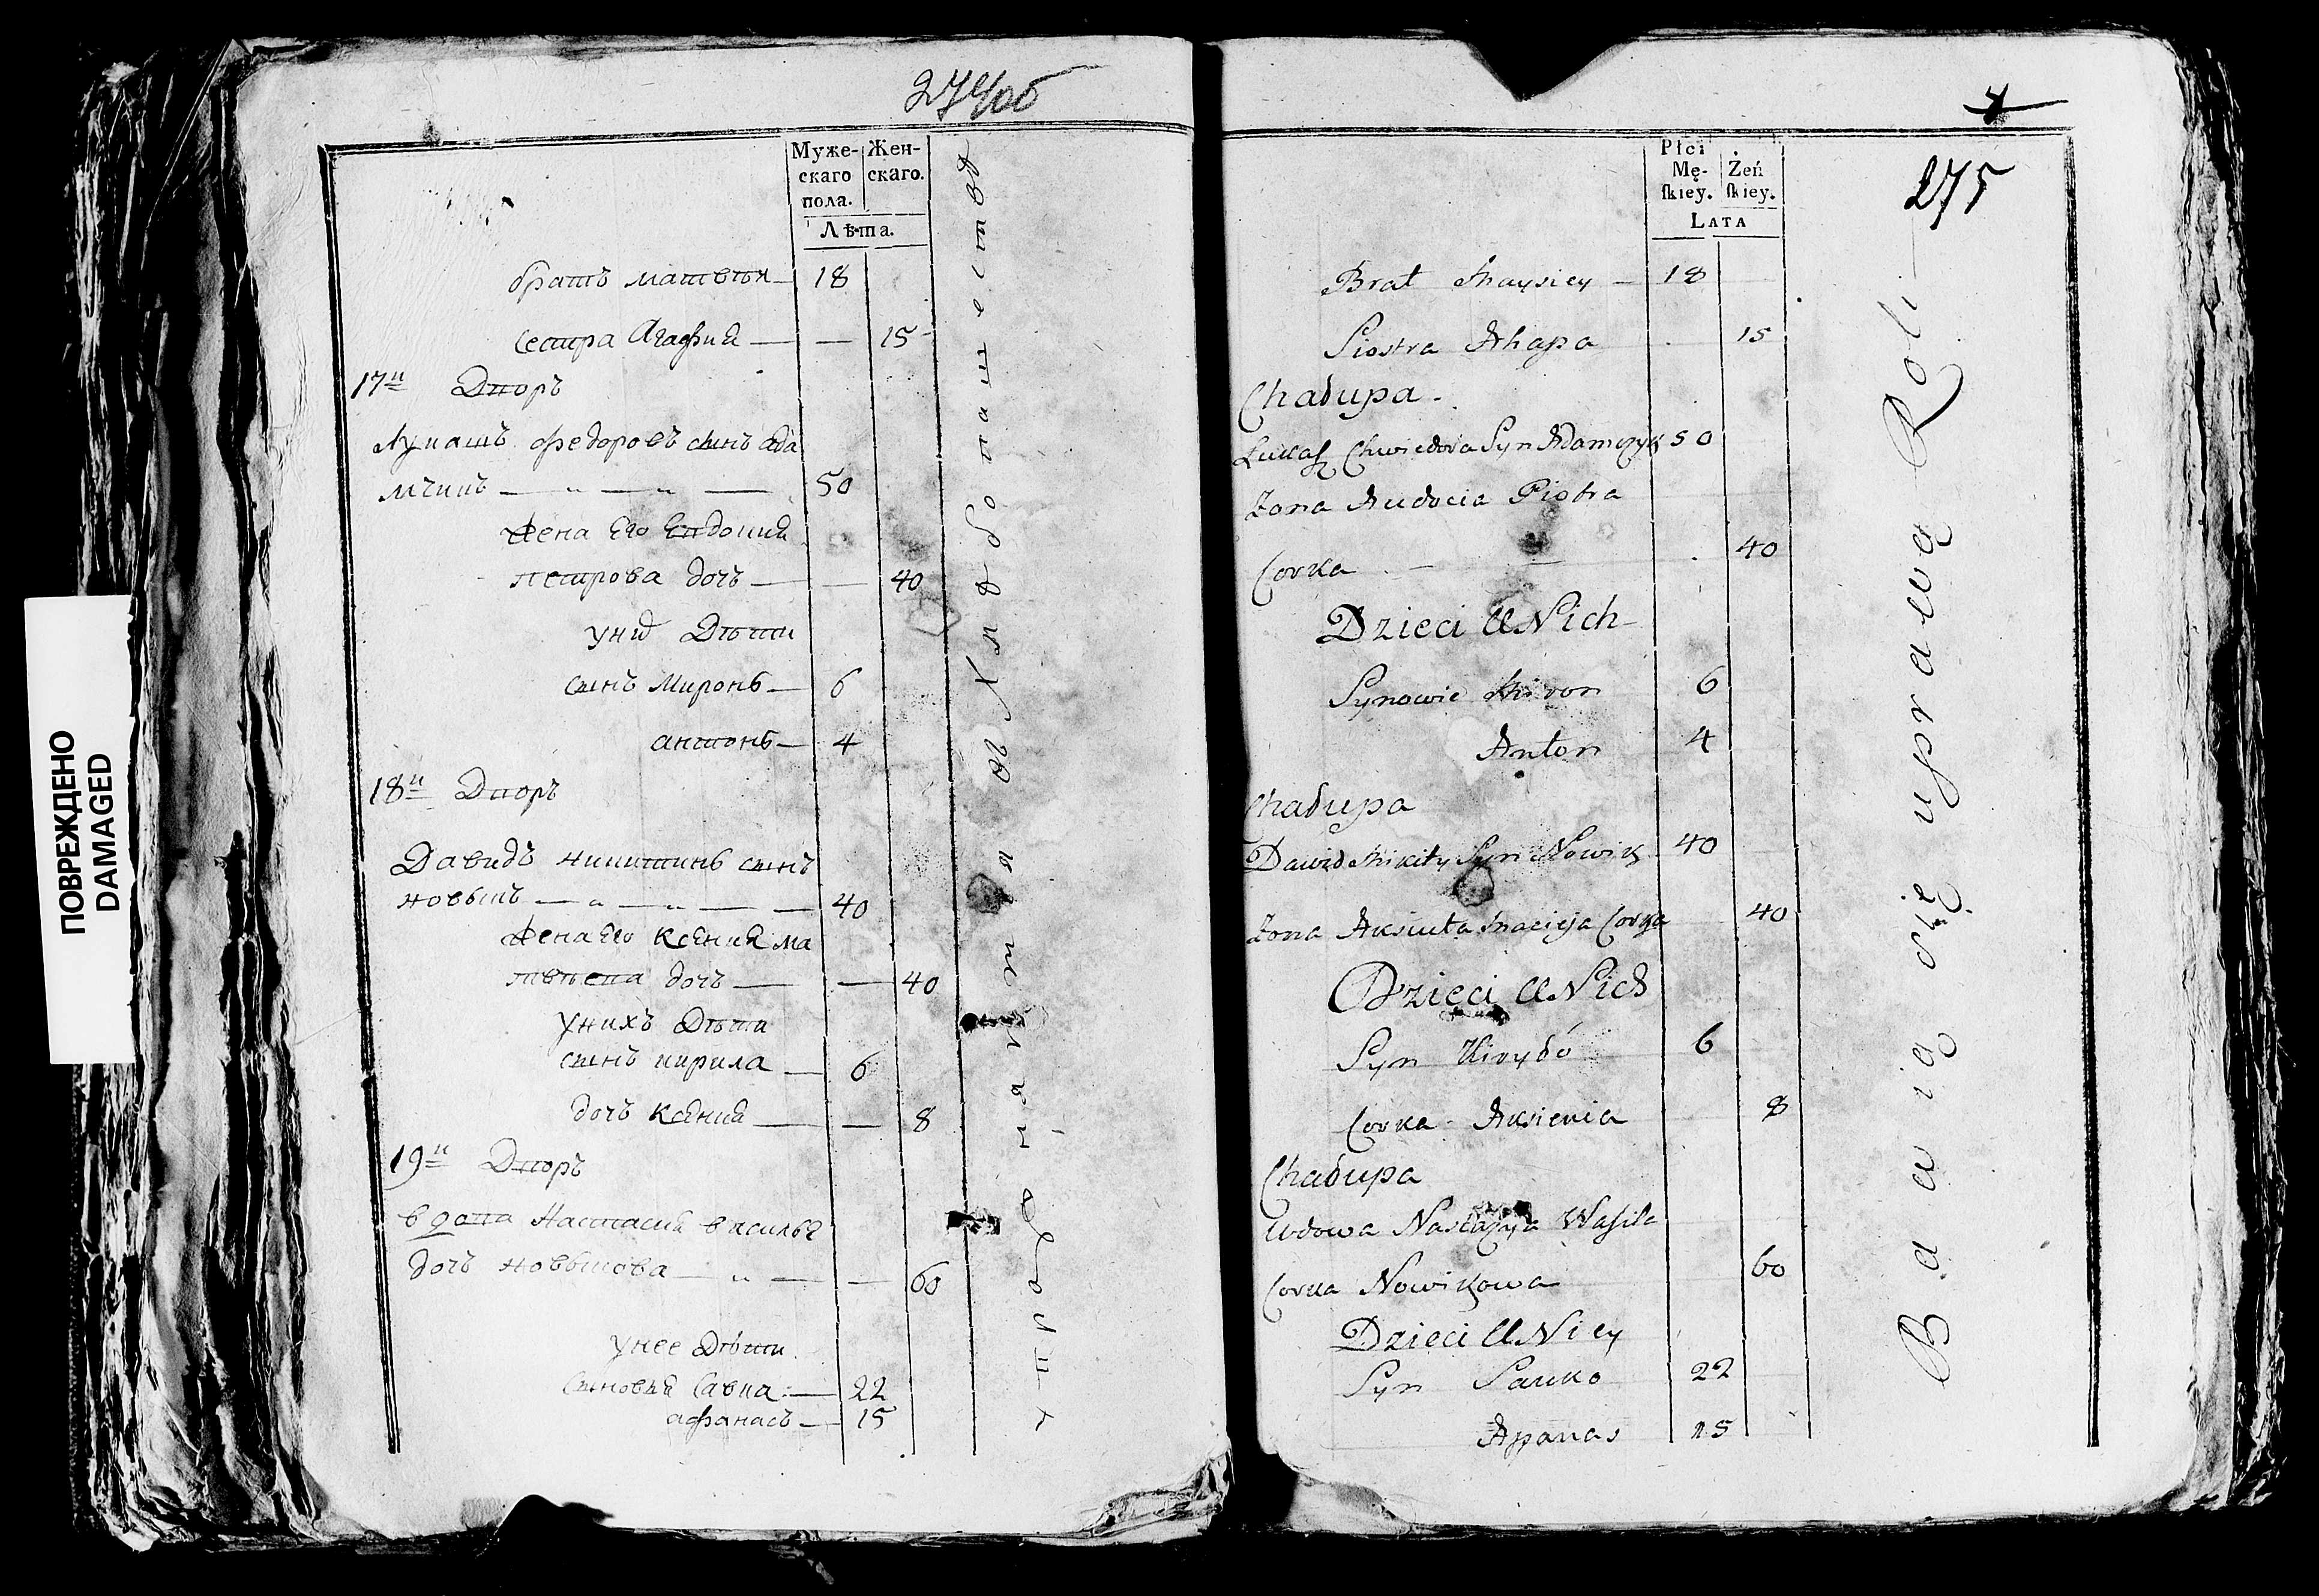 ПОВРЕЖДЕНО
DAMAGED
274об
Муже-
скаго
пола.
Жен-
скаго.
Лѣта.
братъ матвѣй — 18
сестра Агафия — — 15
17й Дворъ
Лукашъ федоровъ сынъ ада
мчикъ — „ — „ — 50
жена Его Евдокия
петрова дочь — — 40
у них Дѣти
сынъ Миронъ — 6
антонъ — 4
18й Дворъ
Давидъ никитинъ сынъ
новыкъ — „ — „ — — 40
жена Его Ксения ма
твѣева дочь — — 40
у нихъ Дѣти
сынъ кирила — 6
дочь Ксения — — 8
19й Дворъ
вдова Настасия василье
дочь новыкова — „ — — 60
у нее Дѣти
сыновья Савка — 22
афанасъ — 15
упражняются в хлѣбопашествѣ
4
275
Płci
Mę-
ſkiey.
Żeń
ſkiey.
Lata
Brat Maysiey — 18
Siostra Ahapa 15
Chałupa
Łukasz Chwiedora Syn Adamczyk 50
Żona Audocia Piotra
Corka — — 40
Dzieci U Nich
Synowie Miron 6
Anton 4
Chałupa
Dawid Mikity Syn Nowik 40
Żona Aksiuta Macieja Corka 40
Dzieci U Nich
Syn Kiryło 6
Corka Aksienia 8
Chałupa
Wdowa Nastazyja Wasila
Corka Nowikowa 60
Dzieci U Niey
Syn Sauko 22
Apanas 15
Bawią się uprawą Roli